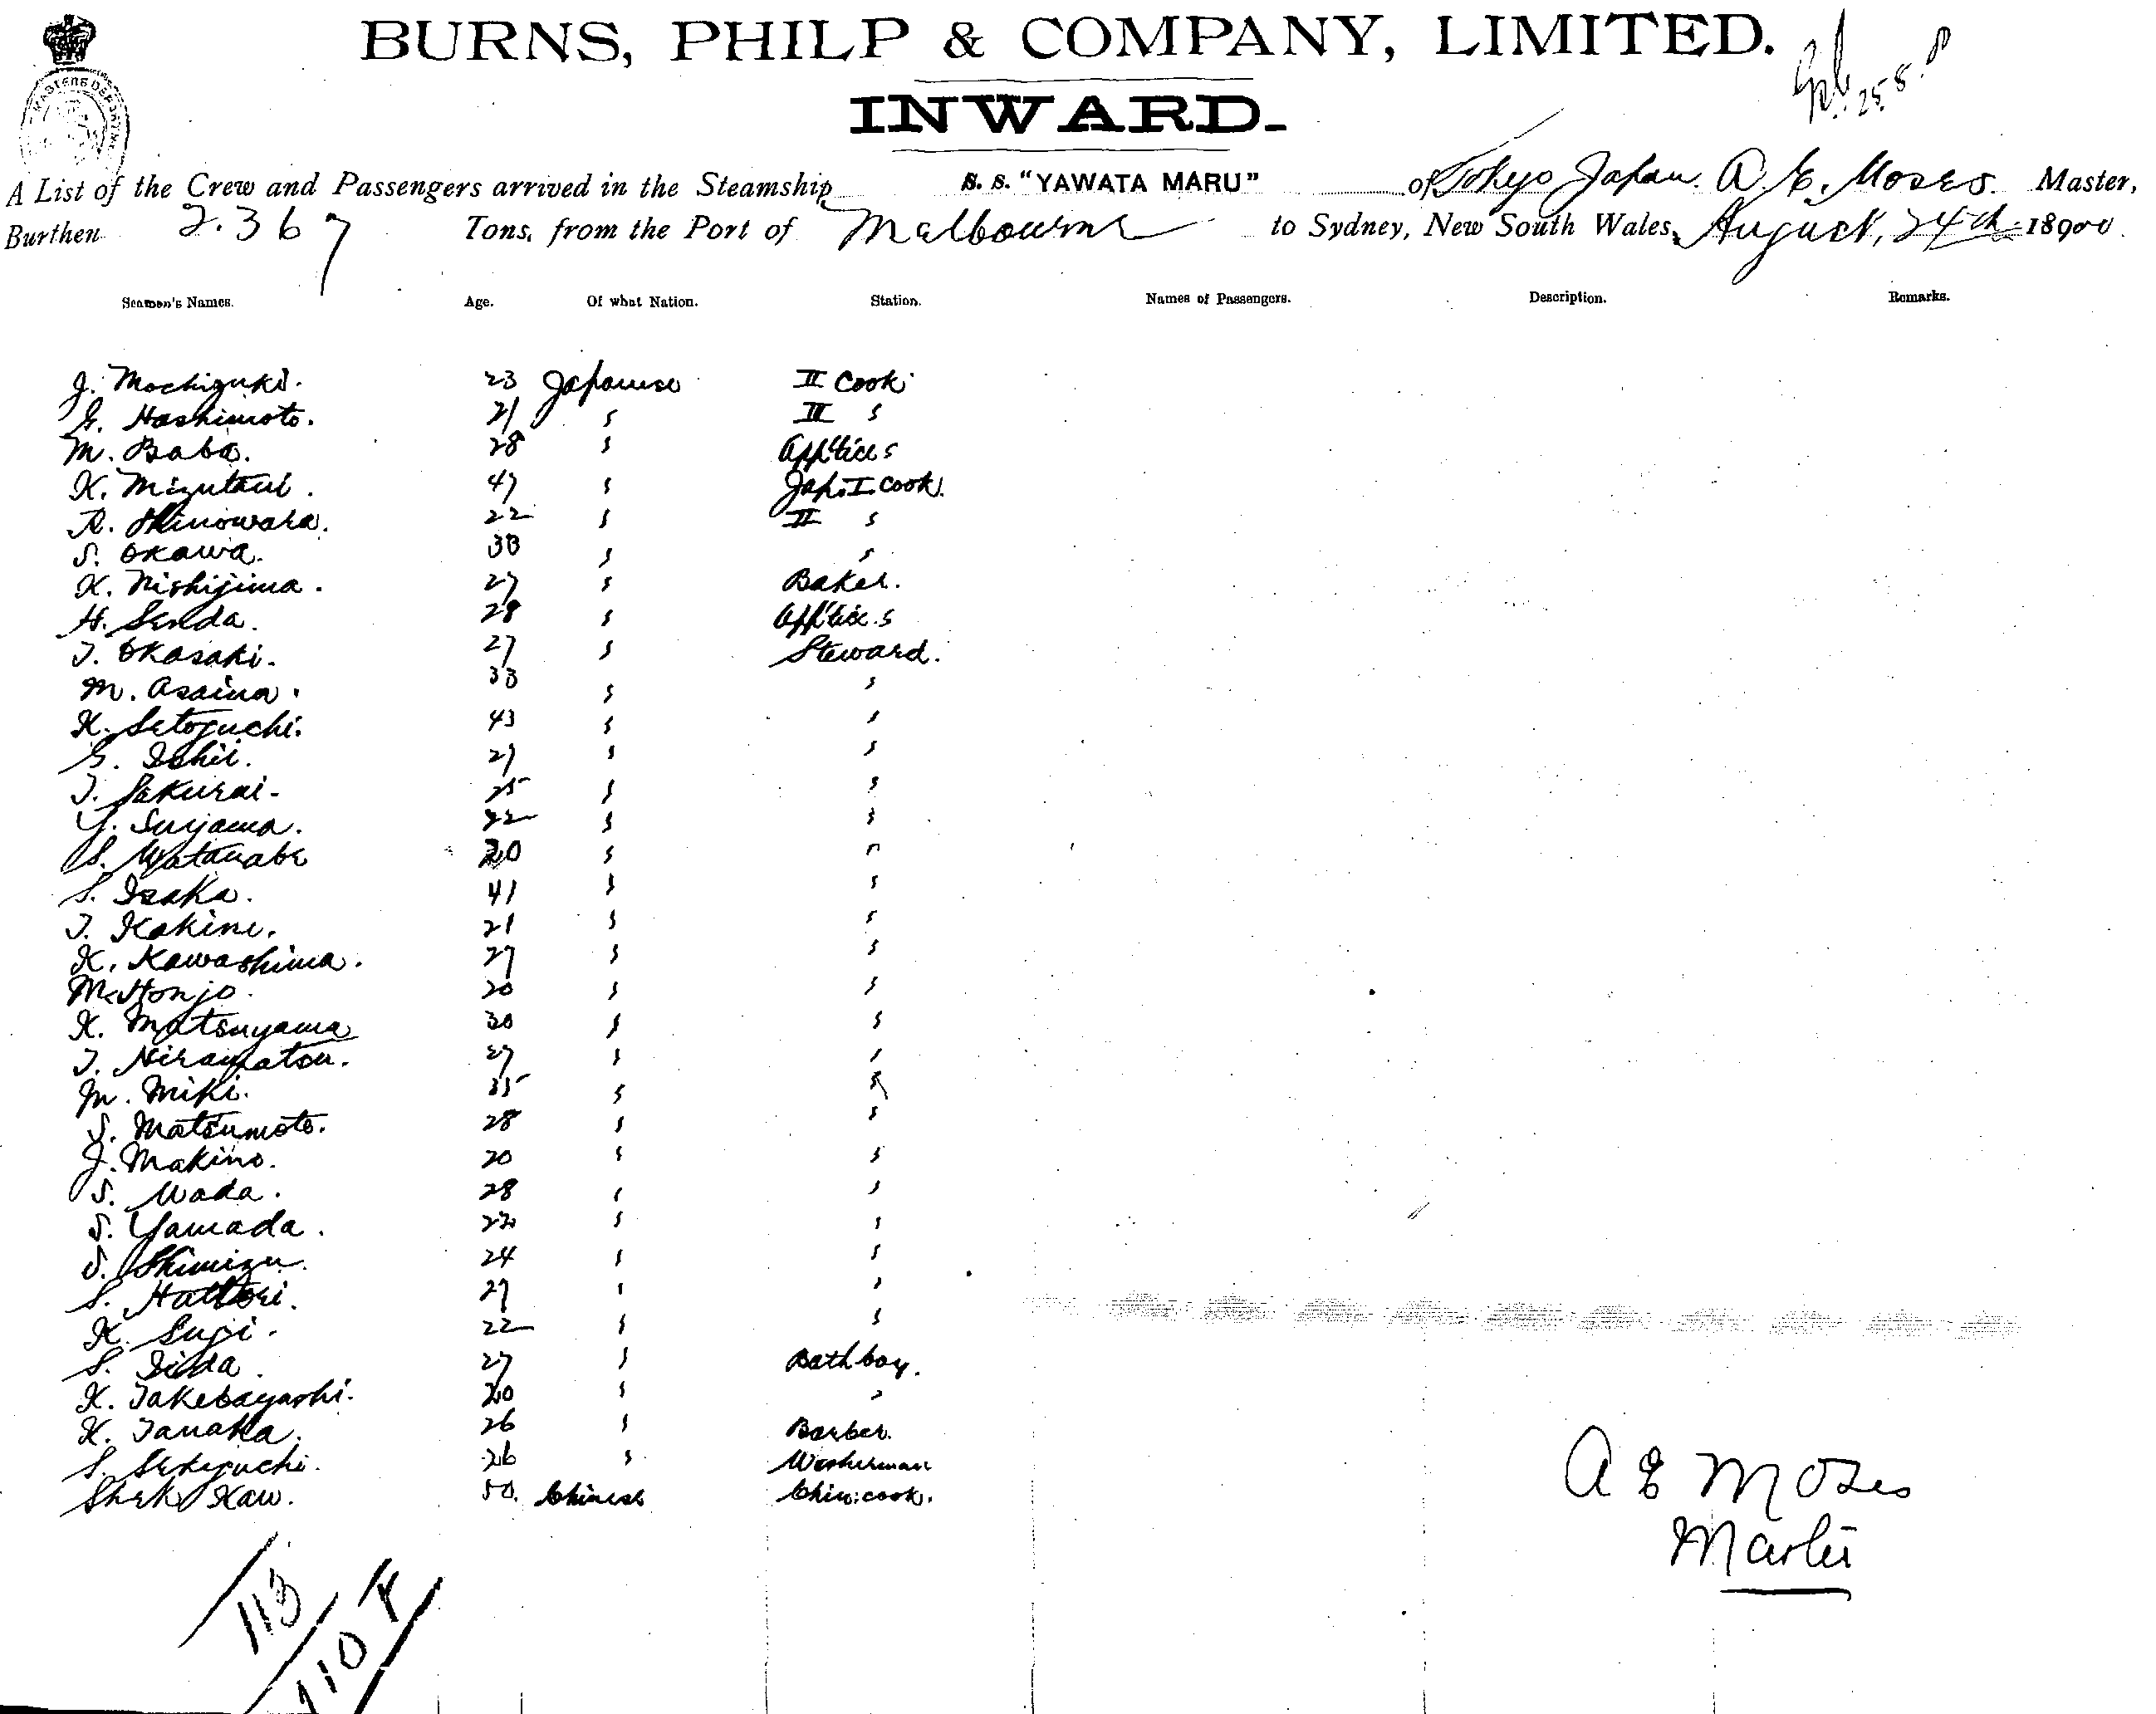 BURNS, PHILP & COMPANY, LIMITED.
INWARD.
25.8.
A List of the Crew and Passengers arrived in the Steamship S. S. "YAWATA MARU" of Tokyo Japan. A. E. Moses. Master,
Burthen 2.367 Tons, from the Port of Melbourne to Sydney, New South Wales, August, 24th 18900
Seamen's Names. Age. Of what Nation. Station. Names of Passengers. Description. Remarks.
J. Mochizuki. 23 Japanese II Cook
G. Hashimoto. 21 s III s
M. Baba. 28 s App'tice s
K. Mizutani. 47 s Jap. I. Cook.
R. Shinowara. 22 s II s
S. Okawa. 30 s s
K. Nishijima. 27 s Baker.
H. Senda. 28 s App'tice s
T. Okasaki. 27 s Steward.
M. Asaina. 33 s s
K. Setoguchi. 43 s s
G. Ishii. 27 s s
T. Sakurai. 25 s s
Y. Suyama. 22 s s
S. Watanabe 20 s s
S. Isaka. 41 s s
T. Kakine. 21 s s
K. Kawashima. 27 s s
M. Honjo. 20 s s
K. Matsuyama 30 s s
T. Hiramatsu. 27 s s
M. Miki. 35 s s
S. Matsumoto. 28 s s
J. Makino. 20 s s
S. Wada. 28 s s
S. Yamada. 22 s s
S. Shimizu. 24 s s
S. Hattori. 27 s s
K. Sugi. 22 s s
S. Iida. 27 s Bath boy.
K. Takebayashi. 20 s s
K. Tanaka. 26 s Barber.
S. Sekiguchi. 26 s Washerman
Shek Kaw. 50. Chinese Chin: cook.
A E Moses
Master
113
110